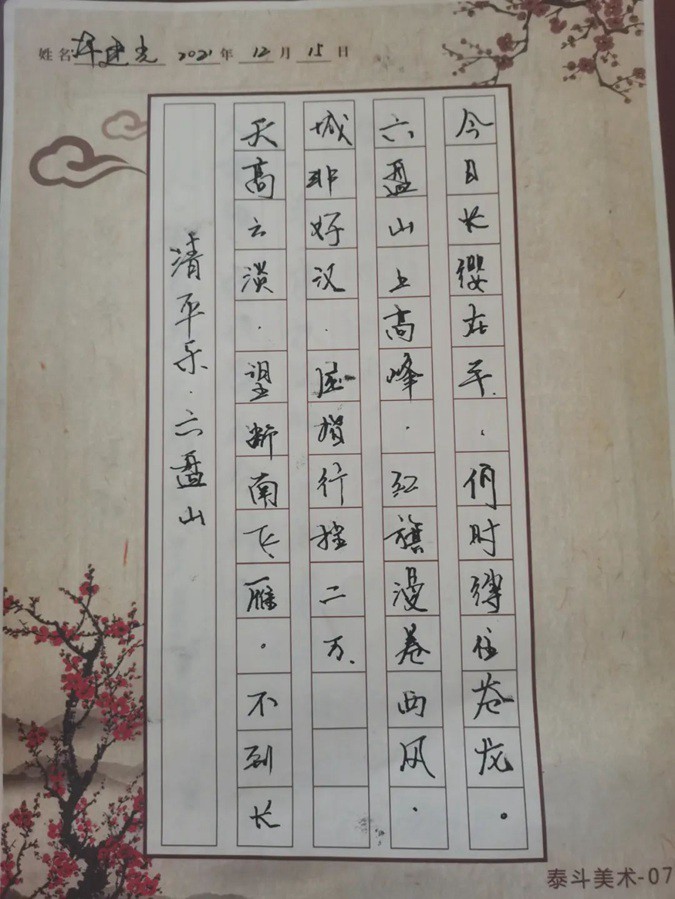 姓名 2021年 12月 15日
清平乐·六盘山
天高云淡·望断南飞雁·不到长
城非好汉·屈指行程二万
六盘山上高峰·红旗漫卷西风·
今日长缨在手、何时缚住苍龙。
泰斗美术-07